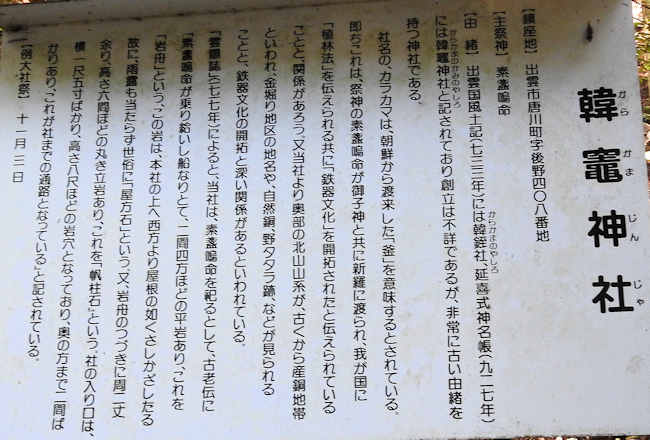 韓竈神社
から かま じん じゃ
【鎮座地】 出雲市唐川町字後野四〇八番地
【主祭神】 素盞嗚命
【由　緒】 出雲国風土記(七三三年)には韓銍社、延喜式神名帳(九二七年)
からかまのやしろ
には韓竈神社と記されており創立は不詳であるが、非常に古い由緒を
からかまのかみのやしろ
持つ神社である。
社名の、カラカマは、朝鮮から渡来した「釜」を意味するとされている。
即ちこれは、祭神の素盞嗚命が御子神と共に新羅に渡られ、我が国に
「植林法」を伝えられる共に、「鉄器文化」を開拓されたと伝えられている
ことと、関係があろう。又当社より奥部の北山山系が、古くから産銅地帯
といわれ、金堀り地区の地名や、自然銅、野タタラ跡、などが見られる
ことと、鉄器文化の開拓と深い関係があるといわれている。
「雲陽誌」(一七一七年)によると、当社は、素盞嗚命を祀るとして、古老伝に
「素盞嗚命が乗り給いし船なりとて、二間四方ほどの平岩あり、これを
「岩舟」という。この岩は、本社の上へ西方より屋根の如くさしかざしたる
故に、雨露も当たらず世俗に「屋方石」という。又、岩舟のつづきに周二丈
余り、高さ六間ほどの丸き立岩あり、これを「帆柱石」という。社の入り口は、
横一尺五寸ばかり、高さ八尺ほどの岩穴となっており、奥の方まで二間ば
かりあり、これが社までの通路となっている」と記されている。
【例大社祭】 十一月三日